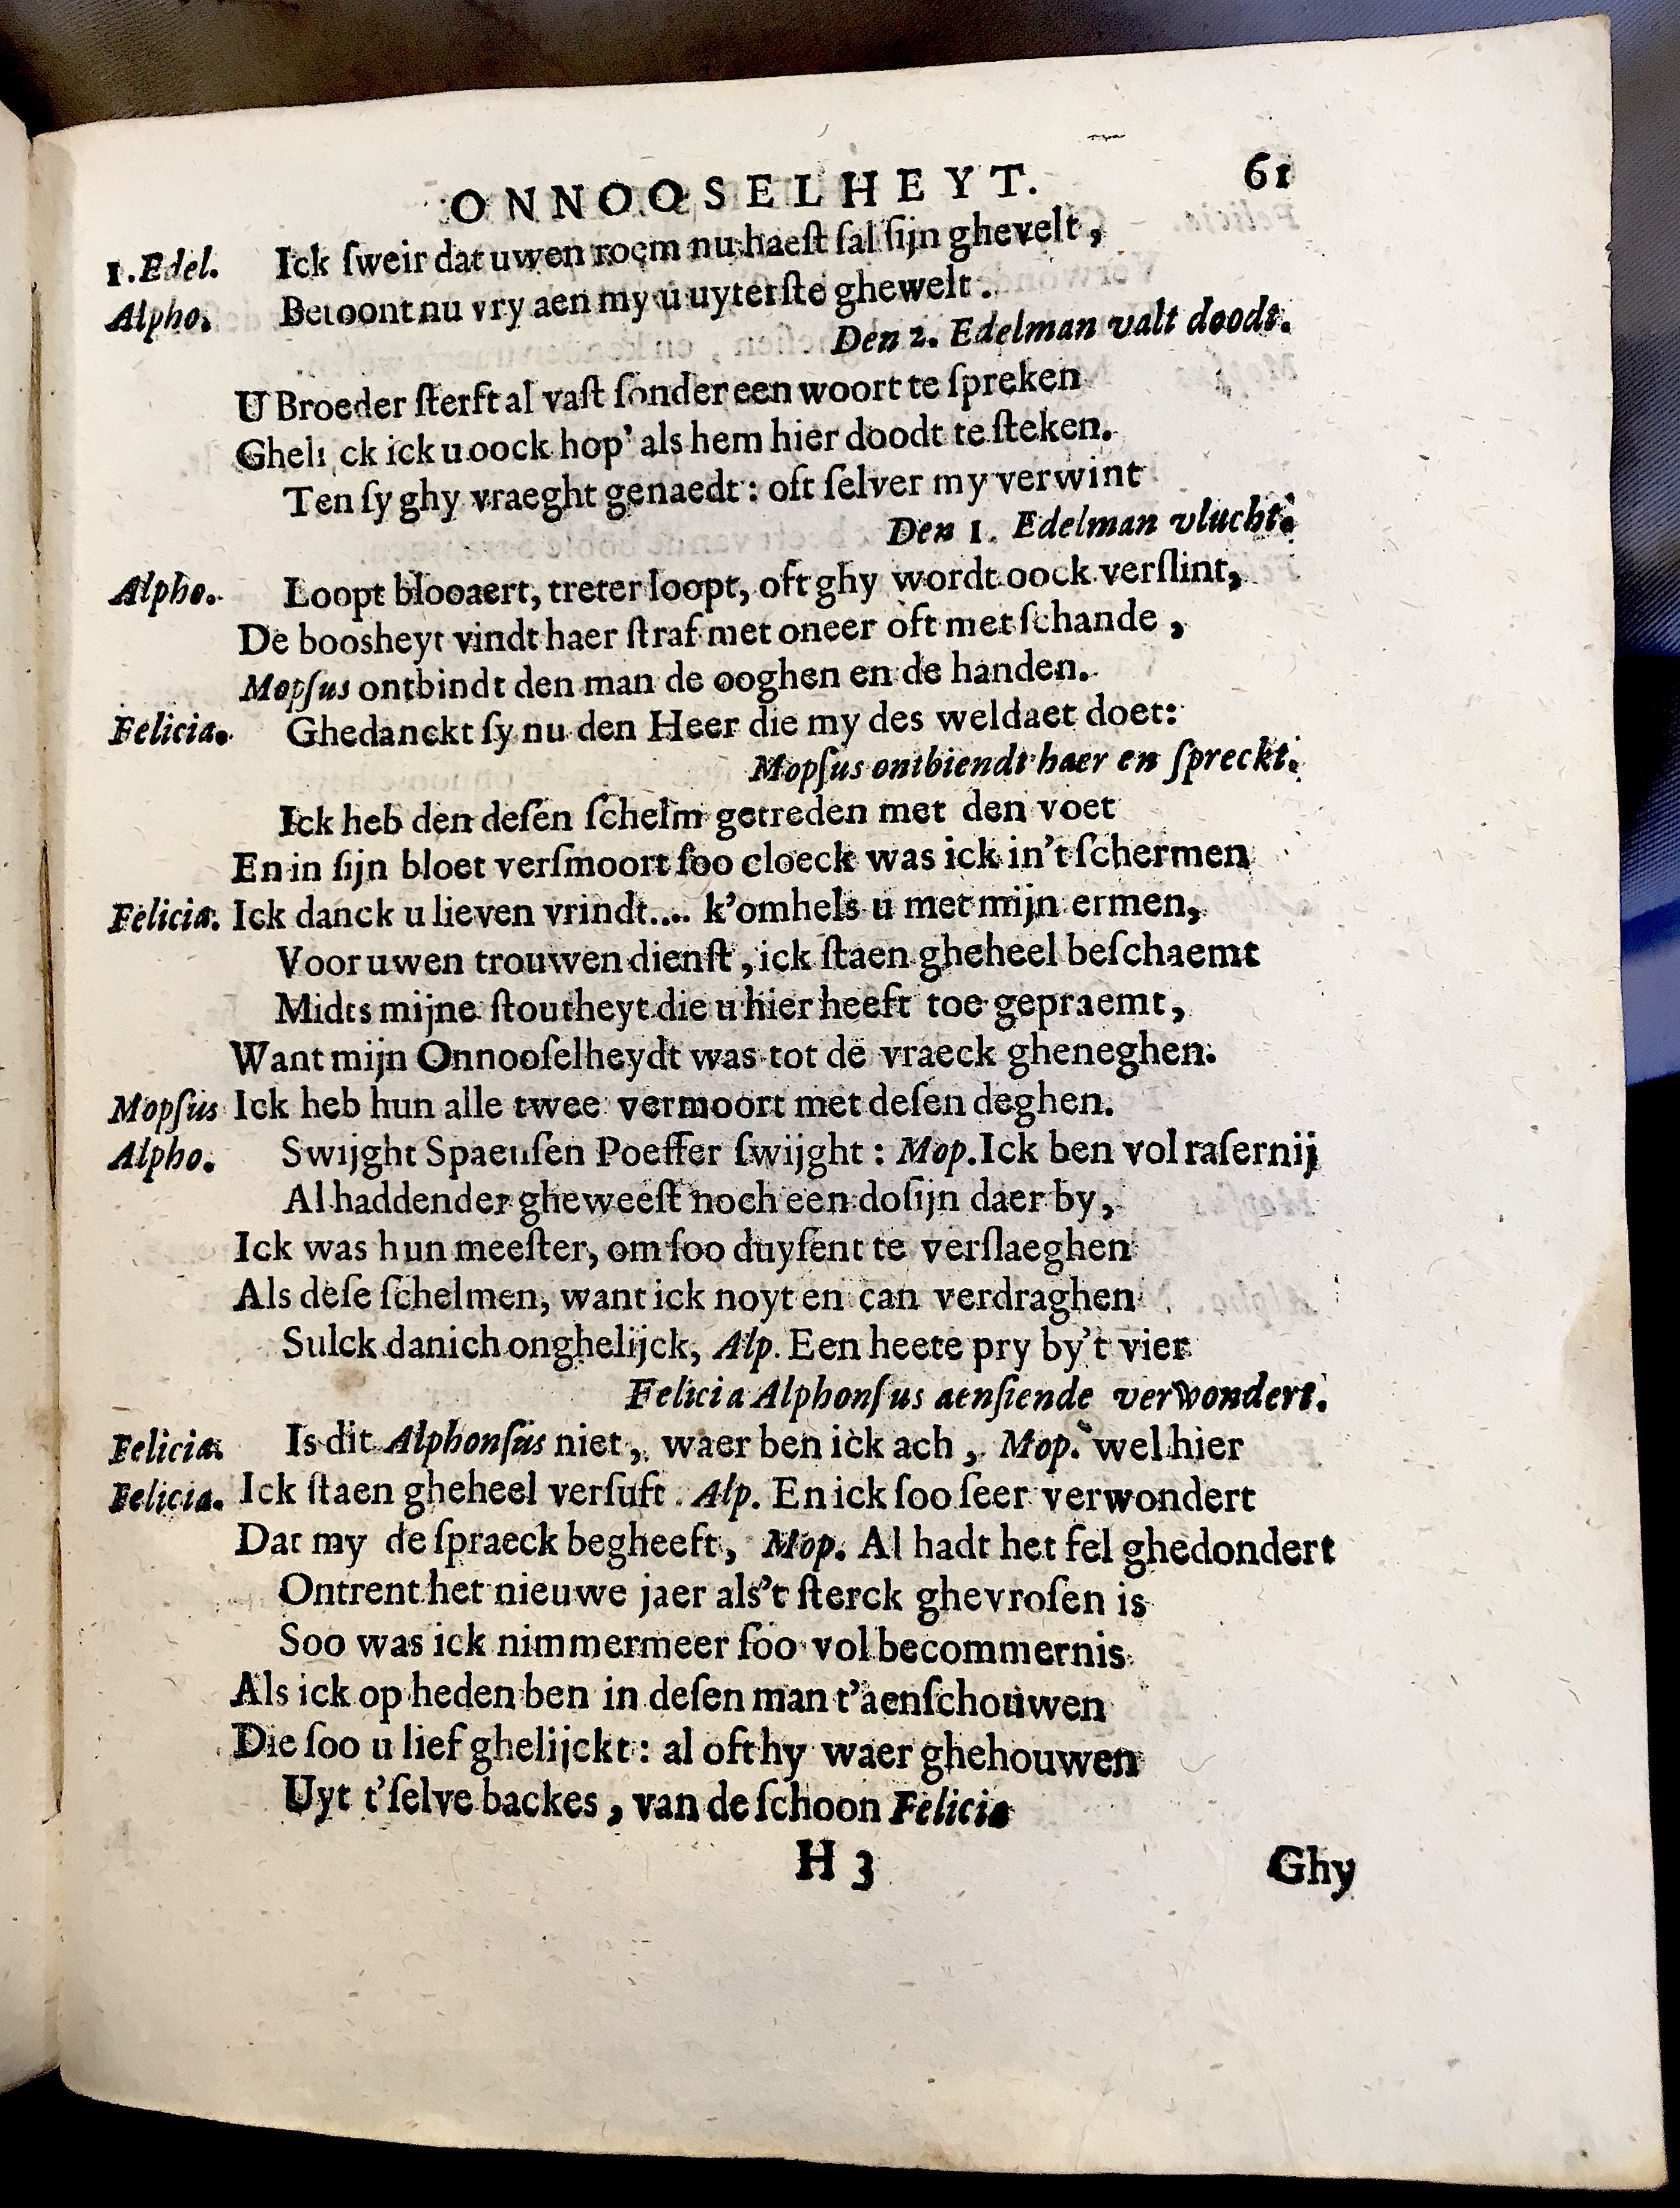 ONNOOSELHEYT. 61
1. Edel. Ick ſweir dat uwen roem nu haeſt ſal ſijn ghevelt,
Alpho. Betoont nu vry aen my u uyterſte ghewelt.
Den 2. Edelman valt doodt.
U Broeder ſterft al vaſt ſonder een woort te ſpreken
Ghelick ick u oock hop' als hem hier doodt te ſteken.
Ten ſy ghy vraeght genaedt: oft ſelver my verwint
Den 1. Edelman vlucht.
Alpho. Loopt blooaert, treter loopt, oft ghy wordt oock verſlint,
De boosheyt vindt haer ſtraf met oneer oft met ſchande,
Mopſus ontbindt den man de ooghen en de handen.
Felicia. Ghedanckt ſy nu den Heer die my des weldaet doet:
Mopſus ontbiendt haer en ſpreckt.
Ick heb den deſen ſchelm getreden met den voet
En in ſijn bloet verſmoort ſoo cloeck was ick in't ſchermen
Felicia. Ick danck u lieven vrindt.... k'omhels u met mijn ermen,
Voor uwen trouwen dienſt, ick ſtaen gheheel beſchaemt
Midts mijne ſtoutheyt die u hier heeft toe gepraemt,
Want mijn Onnooſelheydt was tot de vraeck gheneghen.
Mopſus Ick heb hun alle twee vermoort met deſen deghen.
Alpho. Swijght Spaenſen Poeffer ſwijght: Mop. Ick ben vol raſernij
Al haddender gheweeſt noch een doſijn daer by,
Ick was hun meeſter, om ſoo duyſent te verſlaeghen
Als deſe ſchelmen, want ick noyt en can verdraghen
Sulck danich onghelijck, Alp. Een heete pry by't vier
Felicia Alphonſus aenſiende verwondert.
Felicia. Is dit Alphonſus niet, waer ben ick ach, Mop. wel hier
Felicia. Ick ſtaen gheheel verſuft. Alp. En ick ſoo ſeer verwondert
Dat my de ſpraeck begheeft, Mop. Al hadt het fel ghedondert
Ontrent het nieuwe jaer als't ſterck ghevroſen is
Soo was ick nimmermeer ſoo vol becommernis
Als ick op heden ben in deſen man t'aenſchouwen
Die ſoo u lief ghelijckt: al oft hy waer ghehouwen
Uyt t'ſelve backes, van de ſchoon Felicia
H 3 Ghy